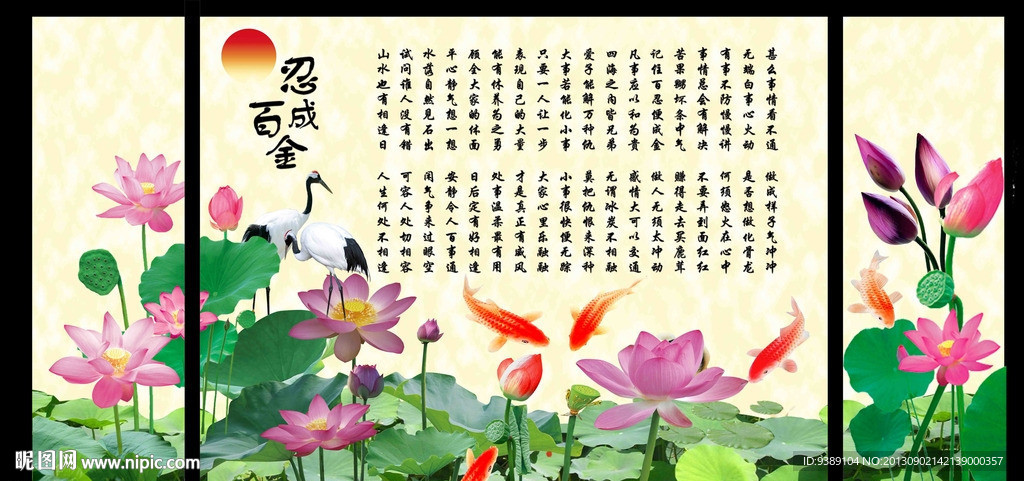 百忍成金
甚么事情看不通 做成样子气冲冲
无端白事心火动 是否想做化骨龙
有事不防慢慢讲 何须惹火在心中
事情总会有解决 不要弄到面红红
苦果嬲坏条中气 赚得走去买鹿茸
记住百忍便成金 做人无须太冲动
凡事应以和为贵 感情大可以交通
四海之内皆兄弟 无谓冰炭不相融
爱子能解万种仇 莫把仇恨来深种
大事若能化小事 小事很快便无踪
只要一人让一步 大家心里乐融融
表现自己的大量 才是真正有威风
能有休养为之勇 处事温柔最有用
顾全大家的体面 日后定有好相逢
平心静气想一想 安静令人百事通
水落自然见石出 闲气事来过眼空
试问谁人没有错 可容人处切相容
山水也有相逢日 人生何处不相逢
昵图网 www.nipic.com
ID:9389104 NO:20130902142139000357